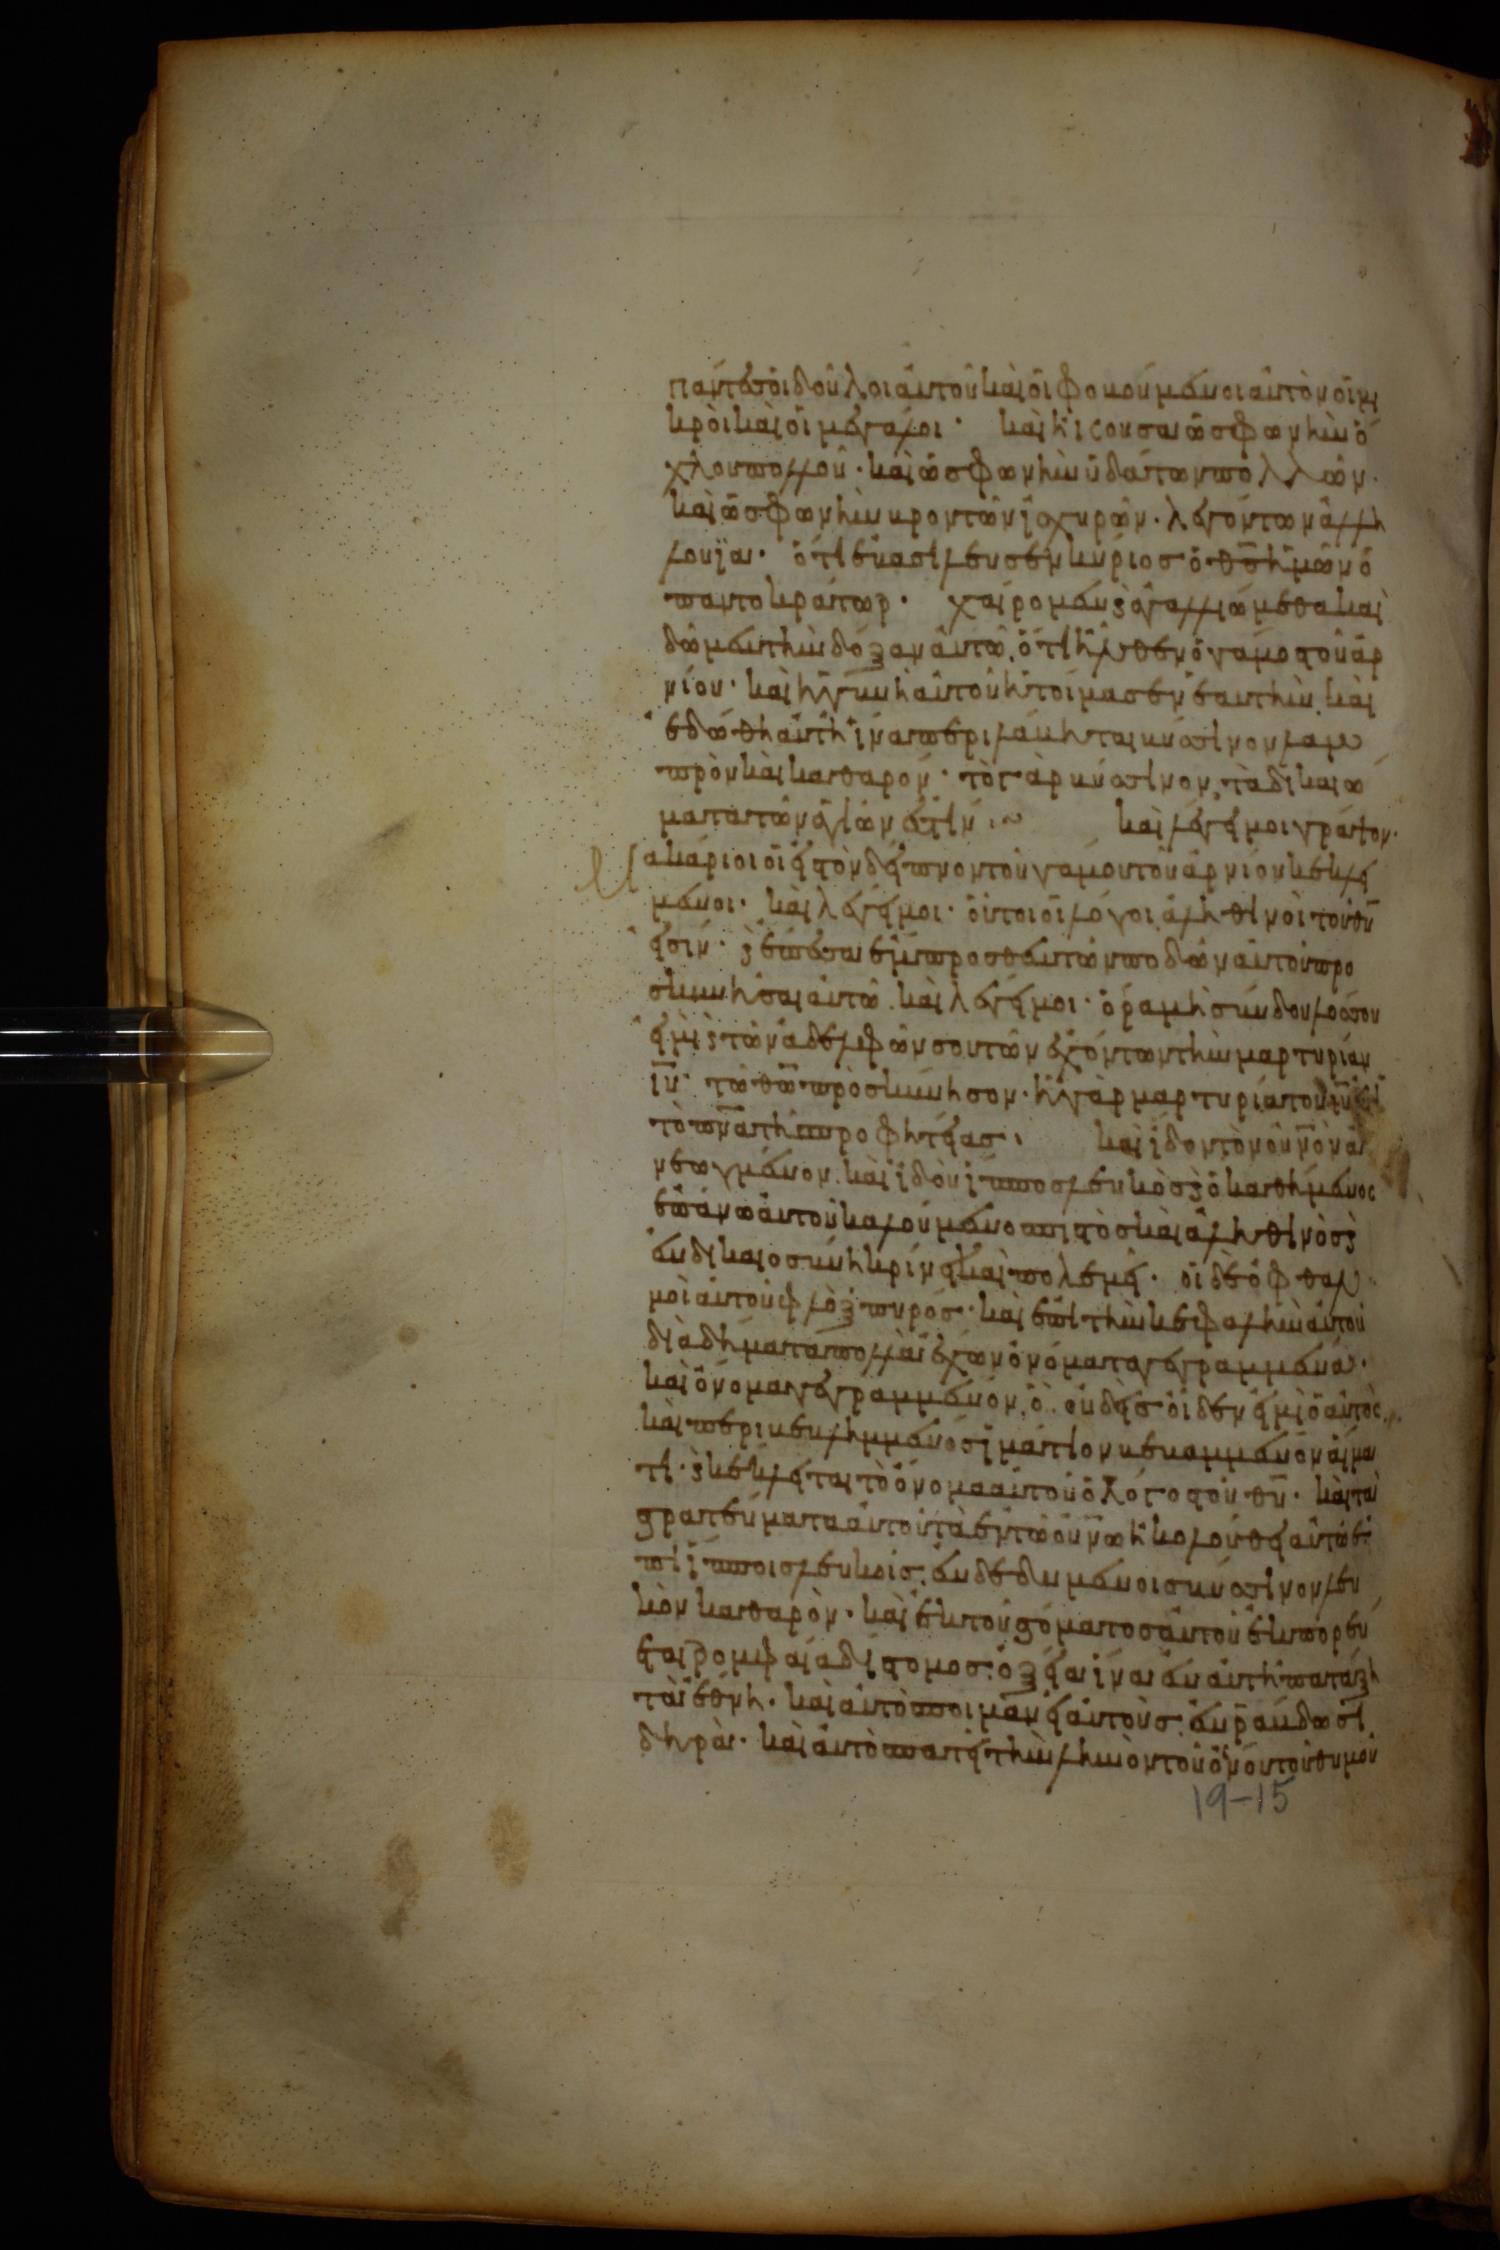 πάντες οἱ δοῦλοι αὐτοῦ καὶ οἱ φοβούμενοι αὐτὸν οἱ μι
κρὸι καὶ οἱ μεγάλοι· καὶ ἤκουσα ὡς φωνὴν ὄ
χλου πολλοῦ· καὶ ὡς φωνὴν ὑδάτων πολλῶν·
καὶ ὡς φωνὴν βροντῶν ἰσχυρῶν· λεγόντων ἀλλη
λουϊα· ὅτι ἐβασίλευσεν κύριος ὁ θ̅ς̅ ἡμῶν ὁ
παντοκράτωρ· χαίρομεν ϗ ἀγαλλιώμεθα καὶ
δῶμεν τὴν δόξαν αὐτῶ, ὅτι ἦλθεν ὁ γάμος τοῦ ἀρ
νίου· καὶ ἡ γυνὴ αὐτοῦ ἡτοίμασεν ἑαυτὴν, καὶ
ἐδώθη αὐτῆ ἵνα περιβάληται βύσσινον λαμ
πρὸν καὶ καθαρόν· τὸ γὰρ βύσσινον, τὰ δικαιώ
ματα τῶν ἁγίων ἐστίν· καὶ λέγει μοι γράψον·
Μακάριοι οἱ εἰς τὸν δεῖπνον τοῦ γάμου τοῦ ἀρνίου κεκλη
μένοι· καὶ λέγει μοι· οὗτοι οἱ λόγοι ἀληθινοὶ τοῦ θ̅υ̅
εἰσίν· ϗ ἔπεσα ἔμπροσθεν τῶν ποδῶν αὐτοῦ προ
σκυνῆσαι αὐτῶ. καὶ λέγει μοι· ὅρα μὴ σύνδουλός σου
εἰμὶ ϗ τῶν ἀδελφῶν σου τῶν ἐχόντων τὴν μαρτυρίαν
ι̅υ̅· τῶ θ̅ω̅ προσκύνησον· ἡ γὰρ μαρτυρία τοῦ ι̅υ̅ ἐστὶ
τὸ π̅ν̅α̅ τῆς προφητείας· καὶ ἴδον τὸν οὐ̅ν̅ο̅ν̅ ἀ
νεωγμένον. καὶ ἰδοὺ ἵππος λευκὸς ϗ ὁ καθήμενος
ἐπάνω αὐτοῦ καλούμενος πιστὸς καὶ ἀληθινὸς ϗ
ἐν δικαιοσύνη κρίνει καὶ πολεμεῖ· οἱ δὲ ὀφθαλ
μοὶ αὐτοῦ φλὸξ πυρός· καὶ ἐπὶ τὴν κεφαλὴν αὐτοῦ
διαδήματα πολλὰ ἔχων ὀνόματα γεγραμμένα·
καὶ ὄνομα γεγραμμένον, ὃ οὐδεὶς οἶδεν εἰ μὶ ὁ αὐτὸς.
καὶ περιβεβλημμένος ἱμάτιον βεβαμμένον αἵμα
τι· ϗ κέκληται τὸ ὄνομα αὐτοῦ ὁ λόγος τοῦ θ̅υ̅· καὶ τὰ
στρατεύματα αὐτοῦ τὰ ἐν τῶ οὐ̅ν̅ω̅ ἠκολούθει αὐτῶ ἐ
πὶ ἵπποις λευκοῖς· ἐνδεδυμένοις βύσσινον λευ
κὸν καθαρὸν· καὶ ἐκ τοῦ στόματος αὐτοῦ ἐκπορεύ
εται ῥομφαία δίστομος ὀξεῖα ἵνα ἐν αὐτῆ πατάξη
τὰ ἔθνη· καὶ αὐτὸς ποιμανεῖ αὐτοὺς ἐν ῥάβδω σι
δηρᾶ· καὶ αὐτὸς πατεῖ τὴν ληνὸν τοῦ οἴνου τοῦ θυμοῦ
19-15